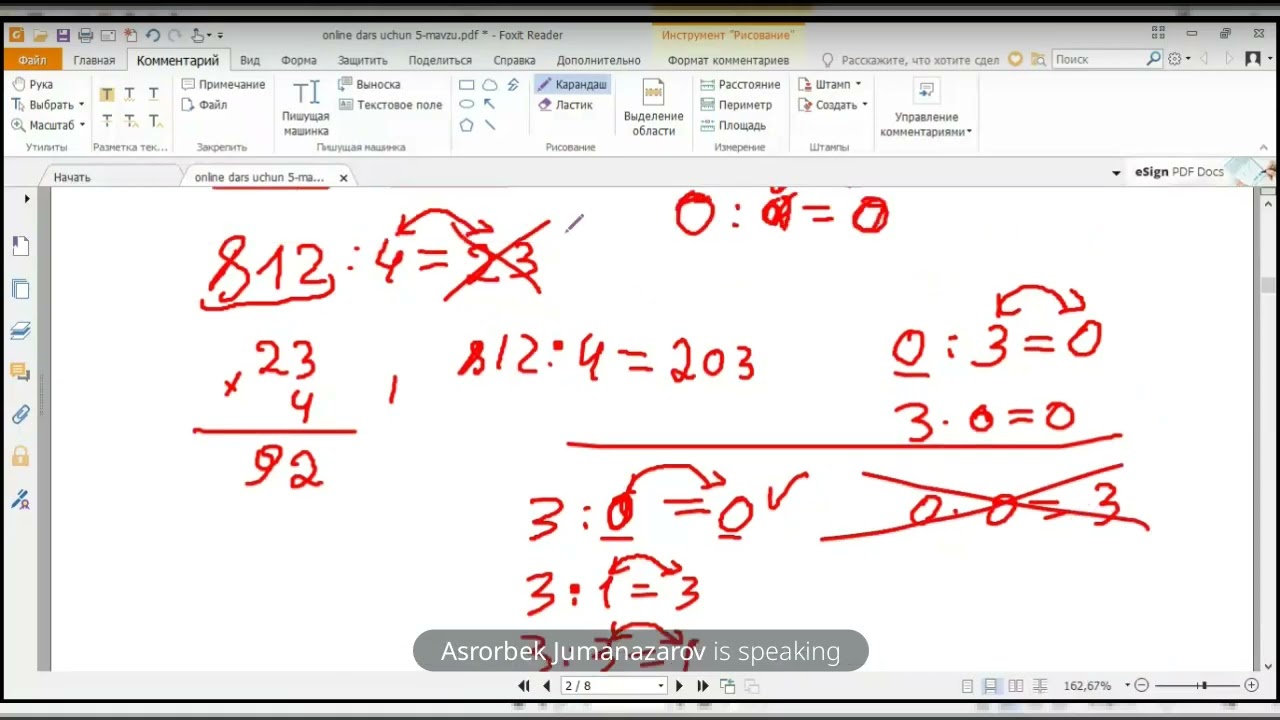 online dars uchun 5-mavzu.pdf * - Foxit Reader
Инструмент "Рисование"
Файл
Главная
Комментарий
Вид
Форма
Защитить
Поделиться
Справка
Дополнительно
Формат комментариев
Расскажите, что хотите сдел
Поиск
Рука
Выбрать
Масштаб
Утилиты
Разметка тек...
Примечание
Файл
Закрепить
Пишущая машинка
Выноска
Текстовое поле
Пишущая машинка
Карандаш
Ластик
Рисование
Выделение области
Расстояние
Периметр
Площадь
Измерение
Штамп
Создать
Штампы
Управление комментариями
Начать
online dars uchun 5-ma...
eSign PDF Docs
812 : 4 = 23
23
× 4
92
812 : 4 = 203
0 : 3 = 0
3 · 0 = 0
3 : 0 = 0
0 · 0 = 3
3 : 1 = 3
3 : 3 = 1
Asrorbek Jumanazarov is speaking
2 / 8
162,67%